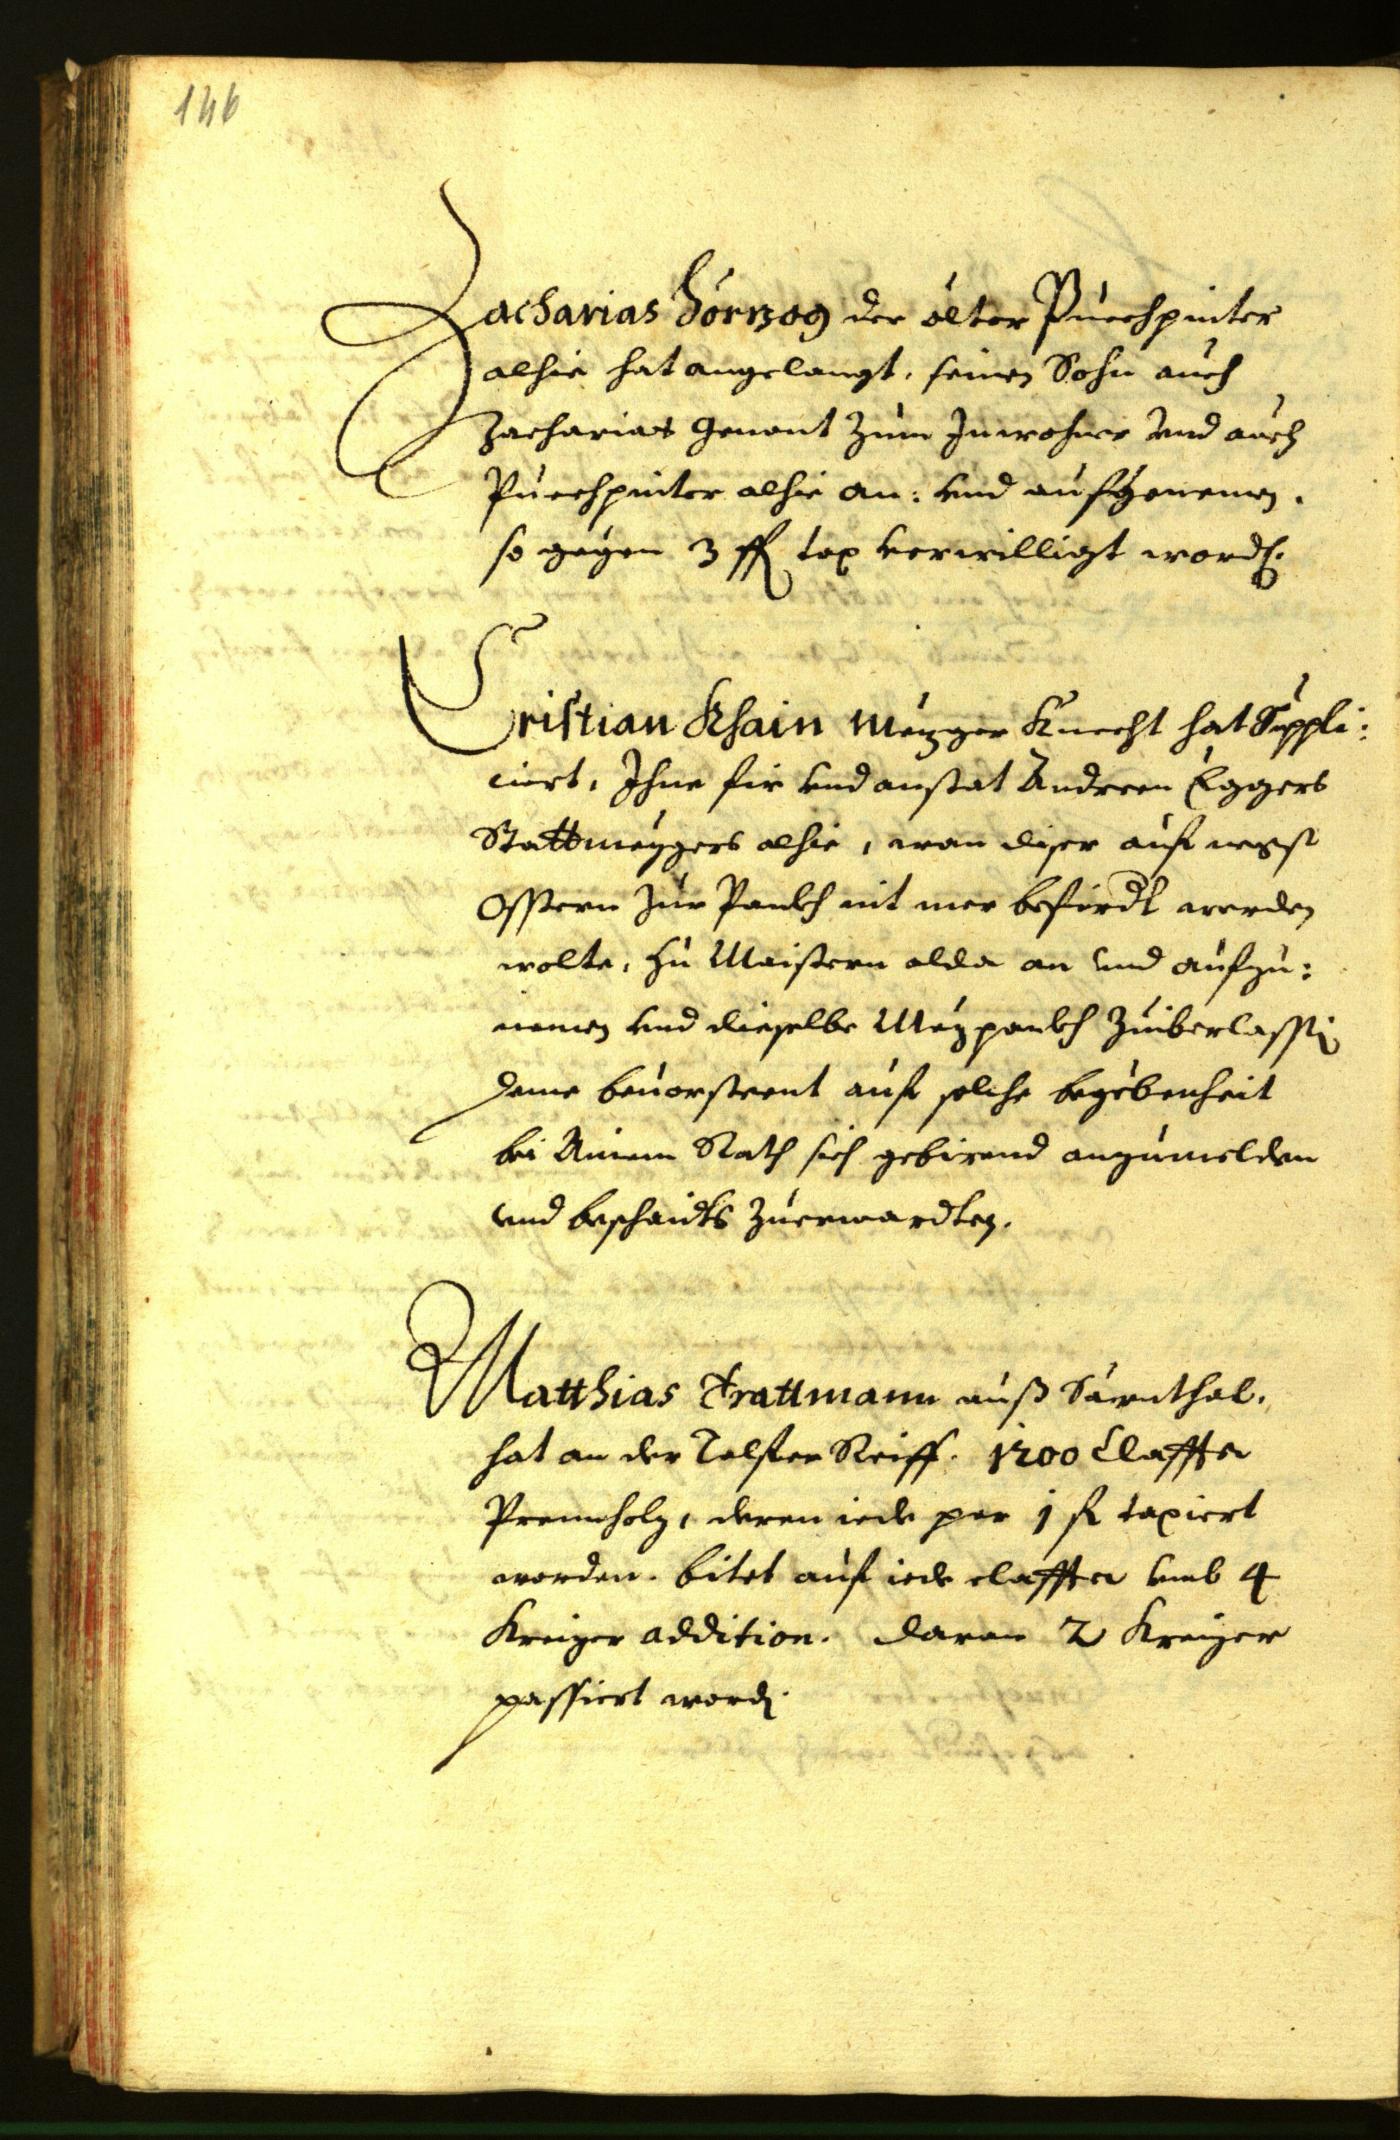 146
Zacharias Hörzog der ölter Puechpinter
alhie hat angelangt, seinen Sohn auch
Zacharias genant zum Inwohner vnd auch
Puechpinter alhie an: vnd aufzenemen.
so gegen 3 fl tax verwilligt word.
Cristian Khain Mezger Knecht hat Suppli:
ciert, Ihne fir vnd anstat Andreen Eggers
Stattmezgers alhie, wan diser auf negst
Osstern zur Pankh nit mer befirdt werden
wolte, zu Maistern alda an vnd aufzu:
nemen vnd dieselbe Mezpankh zuiberlassen
deme beuorsteent auf solche begebenheit
bei Ainem Rath sich gebirend anzumelden
vnd beschaidts zuerwardten.
Matthias Trattmann auß Särnthal.
hat an der Talfer Reiff. 1200 Claffter
Prennholz, deren iede per 1 fl taxiert
worden. bitet auf iede claffter vmb 4
Kreizer addition. daran 2 Kreizer
passiert word.